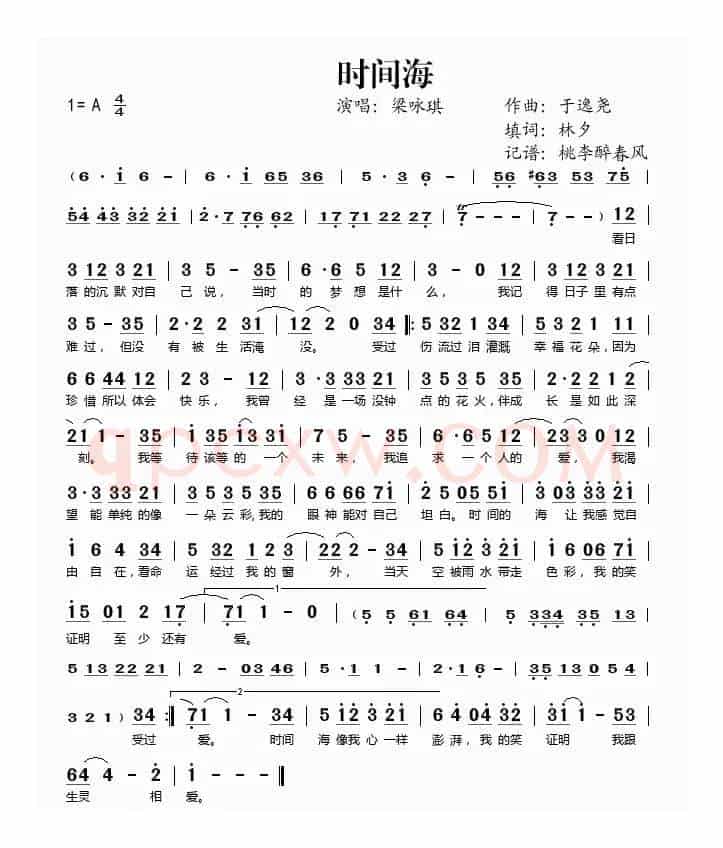 时间海
1= A 4/4 演唱：梁咏琪 作曲：于逸尧
填词：林夕
记谱：桃李醉春风
( 6 · i 6 - | 6 · i 65 36 | 5 · 3 6 - | 56 #63 53 75 |
54 43 32 21 | 2 · 7 76 62 | 17 71 22 27 | 7 - - - | 7 - - ) 12 |
看日
3 12 3 21 | 3 5 - 35 | 6 · 6 5 35 | 3 - 0 12 | 3 12 3 21 |
落的沉 默对自 己 说， 当时 的 梦想 是什 么， 我记 得日子里有点
3 5 - 35 | 2 · 2 2 31 | 12 2 0 34 |: 5 32 1 34 | 5 35 3 21 |
难过， 但没 有 被 生 活淹 没。 受过 伤流过泪灌溉 幸福花朵，因为
6 6 44 12 | 2 3 - 12 | 3 · 3 33 21 | 5 35 3 35 | 2 · 22 1 2 |
珍惜所以体会 快乐， 我曾 经 是一场没钟 点的花火，伴成 长 是如此深
21 1 - 35 | i 35 i3 3i | i 5 - 35 | 6 · 6 5 12 | 2 3 3 0 12 |
刻。 我等 待该等的一个 未来， 我追 求 一个人的 爱， 我渴
3 · 3 33 21 | 5 35 3 35 | 6 66 66 71 | 2 5 05 51 | 3 · 03 33 21 |
望 能单纯的像 一朵云彩，我的 眼神能对自己 坦白。时间的 海 让我感觉自
1 6 4 34 | 5 32 1 2 3 | 22 2 - 34 | 5 12 3 21 | 6 06 5 71 |
由自在，看命 运经过我的窗 外， 当天 空被雨水带走 色彩，我的笑
1
i5 01 2 17 | 71 1 - 0 | ( 5 5 61 64 | 5 534 35 13 |
证明 至少还有 爱。
5 13 22 21 | 2 - 03 46 | 5 · 1 1 - | 2 · 1 6 - | 35 13 0 54 |
2
3 2 1 ) 34 :| 71 1 - 34 | 5 12 3 21 | 6 4 04 32 | 31 1 - 53 |
受过 爱。 时间 海像我心一样 澎湃，我的笑 证明 我跟
64 4 - 2 | 1 - - - ‖
生灵 相 爱。
qpcxw.COM